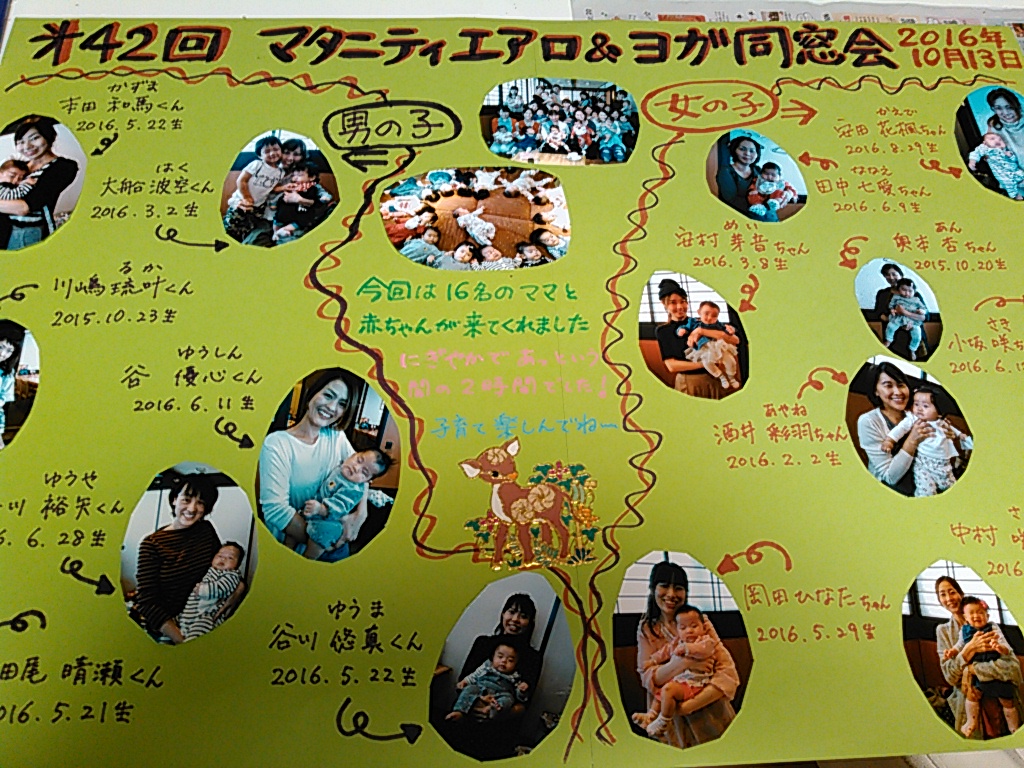 第42回 マタニティエアロ&ヨガ同窓会
2016年
10月13日
男の子
かずま
本田 和馬くん
2016.5.22生
はく
大船 波空くん
2016.3.2生
るか
川嶋 琉叶くん
2015.10.23生
ゆうしん
谷 優心くん
2016.6.11生
ゆうせ
川 裕矢くん
6.28生
田尾 晴瀬くん
016.5.21生
ゆうま
谷川 悠真くん
2016.5.22生
今回は16名のママと
赤ちゃんが来てくれました
にぎやかであっという
間の2時間でした!
子育て楽しんでね〜
女の子
かえで
冠田 花楓ちゃん
2016.8.29生
ななえ
田中 七愛ちゃん
2016.6.9生
めい
安村 芽音ちゃん
2016.3.8生
あん
奥本 杏ちゃん
2015.10.20生
さき
小坂 咲ち
2016.6.1
あやね
酒井 彩羽ちゃん
2016.2.2生
さ
中村
2016
岡田 ひなたちゃん
2016.5.29生